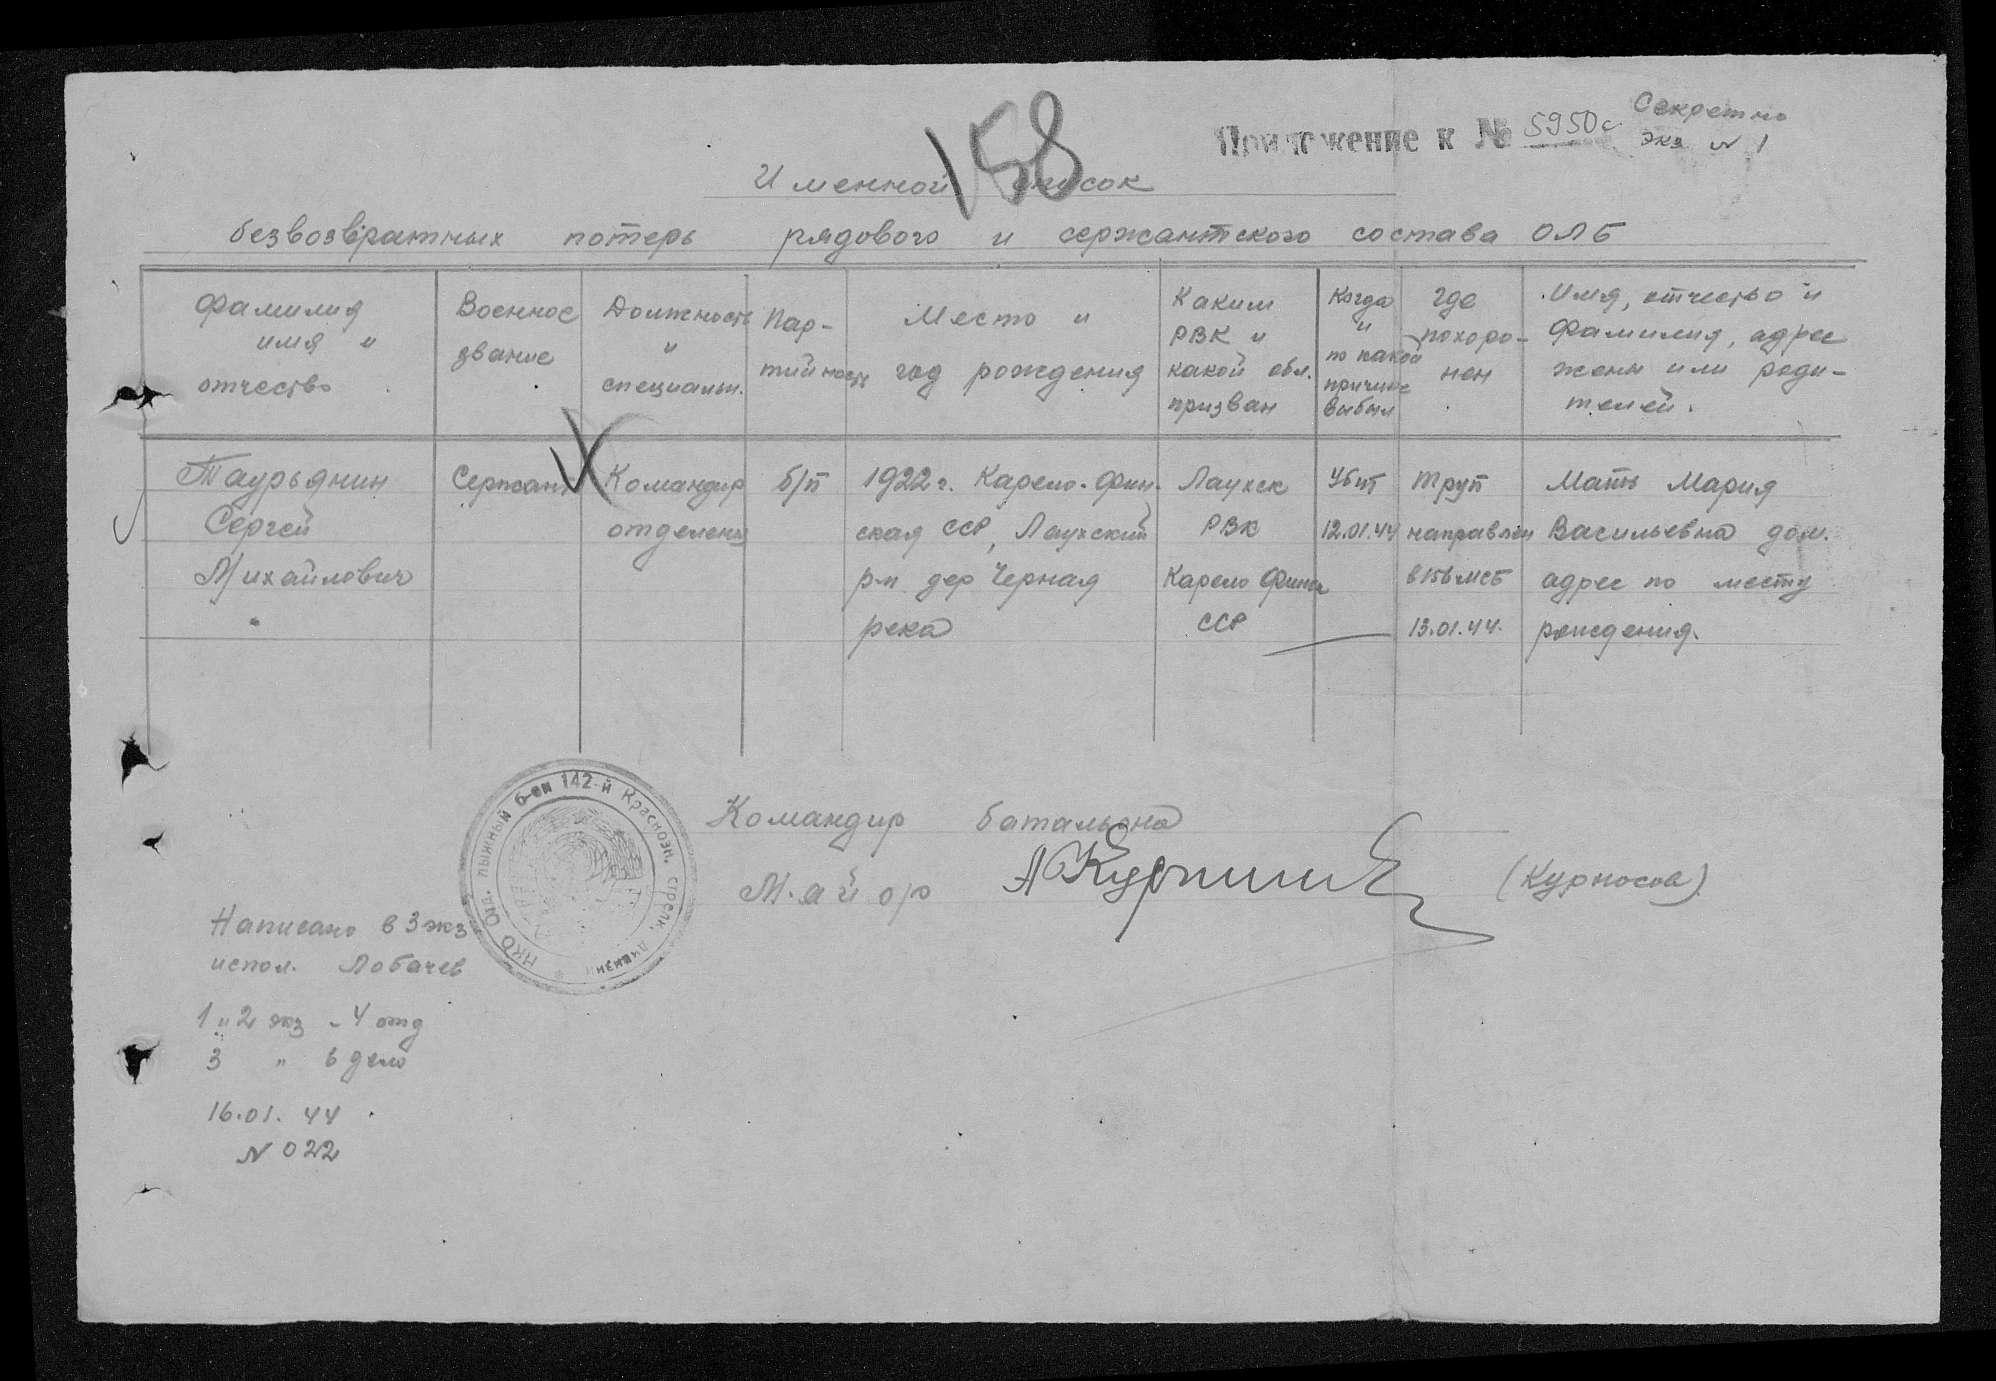 Секретно
Приложение к № 5950с
Экз N 1
158
Именной список
безвозвратных потерь рядового и сержантского состава ОЛБ
Фамилия имя и отчество
Военное звание
Должность и специальн.
Пар-тийность
Место и год рождения
Каким РВК и какой обл. призван
Когда и по какой причине выбыл
Где похоро-нен
Имя, отчество и фамилия, адрес жены или роди-телей.
Таурьянин Сергей Михайлович
Сержант
Командир отделения
б/п
1922 г. Карело-Фин-ская ССР, Лаухский р-н дер Черная река
Лаухск РВК Карело Финск ССР
Убит 12.01.44
Труп направлен в МСБ 13.01.44.
Мать Мария Васильевна дом. адрес по месту рождения.
НКО Отд. лыжный б-он 142-й Краснозн. стрелк. дивизии
Командир батальона
Майор
(Курносов)
Написано в 3 экз
испол. Лобачев
1 и 2 экз - 4 отд
3 " в дело
16.01.44
N 022